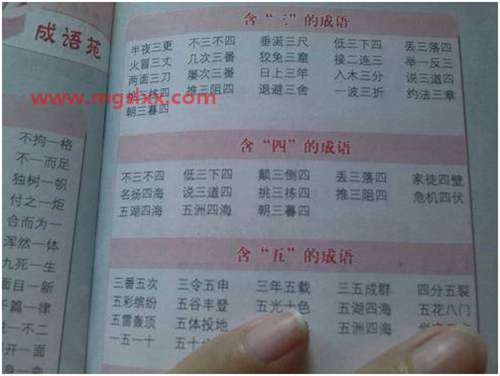 成语苑
不拘一格
不一而足
独树一帜
付之一炬
合而为一
浑然一体
九死一生
面目一新
千篇一律
不二
开一面
含“三”的成语
半夜三更 不三不四 垂涎三尺 低三下四 丢三落四
火冒三丈 几次三番 狡兔三窟 接二连三 举一反三
两面三刀 屡次三番 日上三竿 入木三分 说三道四
挑三拣四 推三阻四 退避三舍 一波三折 约法三章
朝三暮四
www.mgslxx.com
含“四”的成语
不三不四 低三下四 颠三倒四 丢三落四 家徒四壁
名扬四海 说三道四 挑三拣四 推三阻四 危机四伏
五湖四海 五洲四海 朝三暮四
含“五”的成语
三番五次 三令五申 三年五载 三五成群 四分五裂
五彩缤纷 五谷丰登 五光十色 五湖四海 五花八门
五雷轰顶 五体投地 五洲四海
一五一十 五十